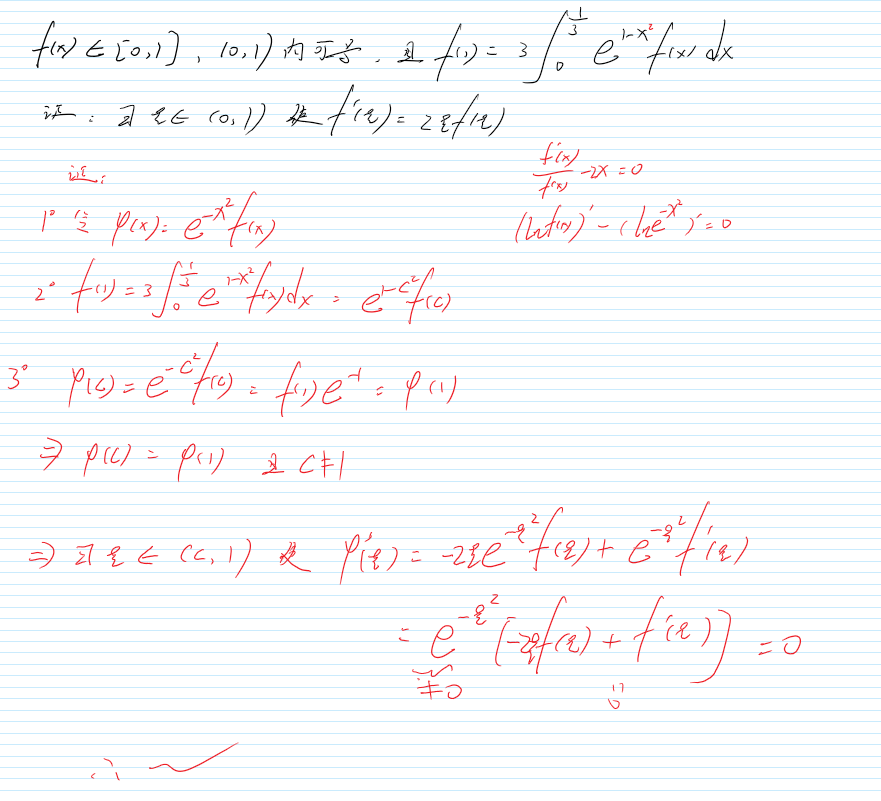 f(x) ∈ [0,1], (0,1) 内可导, 且 f(1) = 3∫₀^{1/3} e^{1-x²} f(x) dx
证: ∃ ξ ∈ (0,1) 使 f'(ξ) = 2ξf(ξ)
证:
f'(x)/f(x) - 2x = 0
1° 令 φ(x) = e^{-x²} f(x)
(ln f(x))' - (ln e^{-x²})' = 0
2° f(1) = 3∫₀^{1/3} e^{1-x²} f(x) dx = e^{1-c²} f(c)
3° φ(c) = e^{-c²} f(c) = f(1) e^{-1} = φ(1)
⇒ φ(c) = φ(1) 且 c ≠ 1
⇒ ∃ ξ ∈ (c, 1) 使 φ'(ξ) = -2ξe^{-ξ²} f(ξ) + e^{-ξ²} f'(ξ)
= e^{-ξ²} [-2ξf(ξ) + f'(ξ)] = 0
≠0
=0
∴ ✓